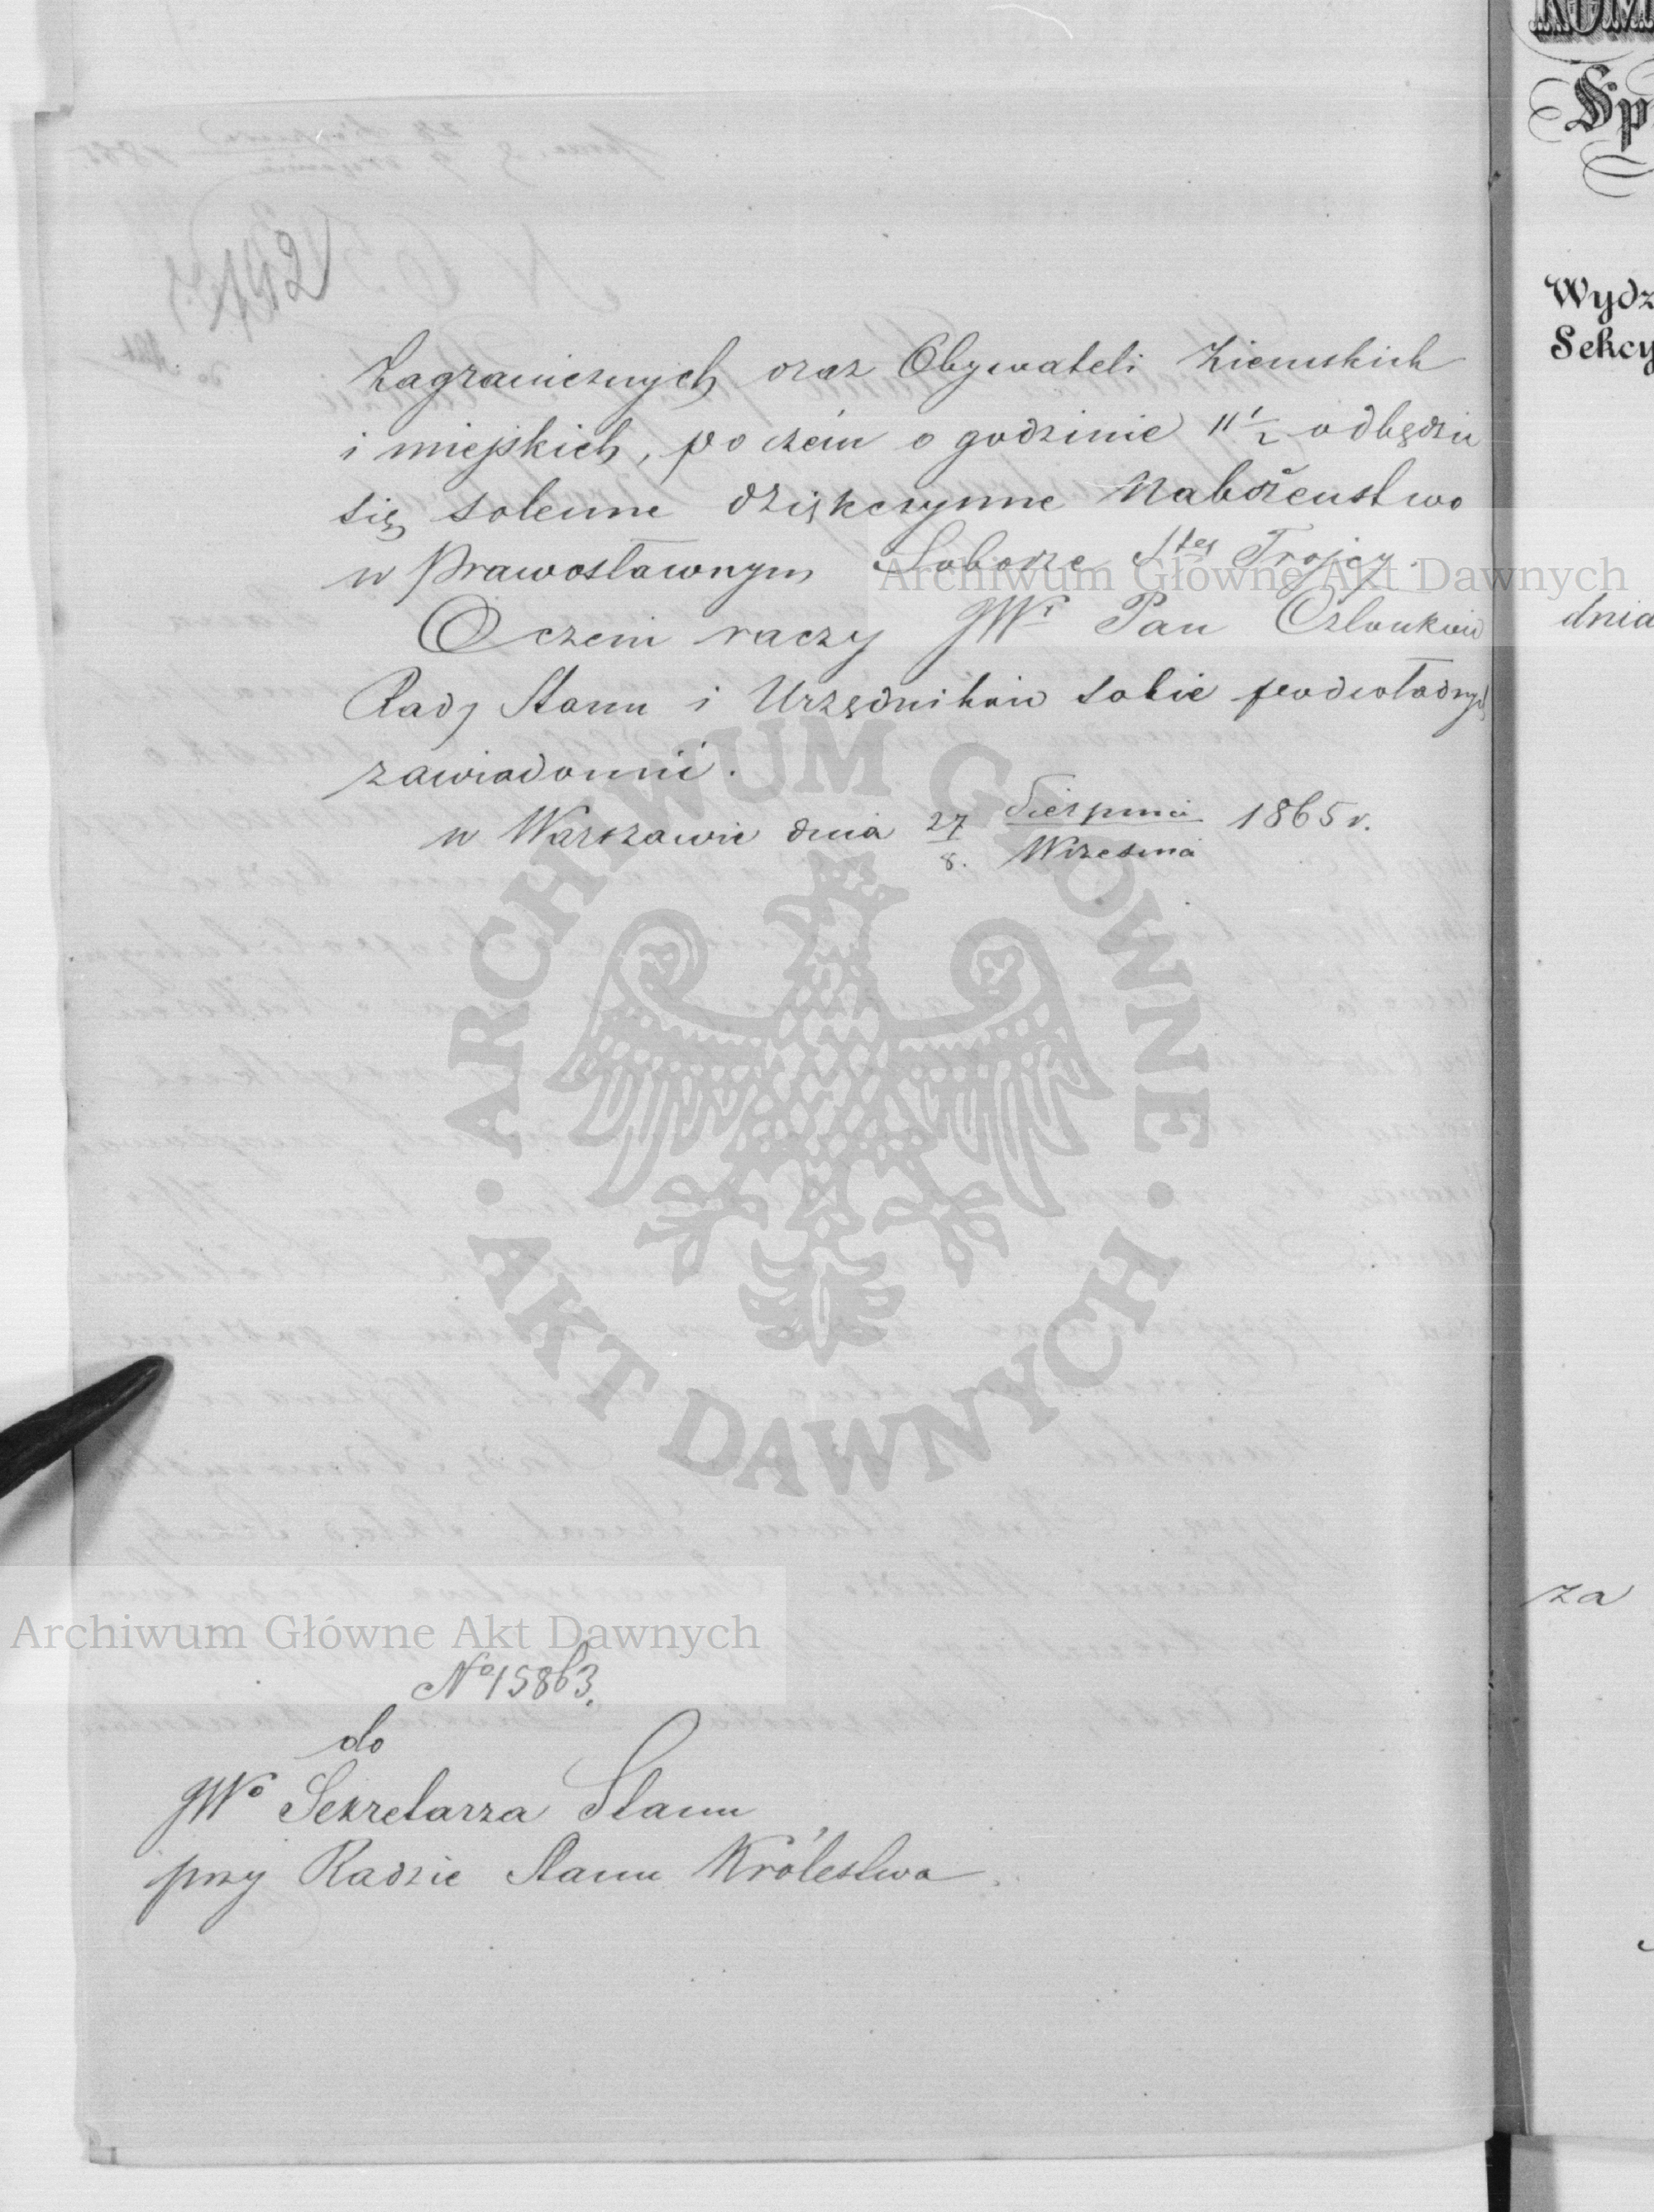 142
Zagranicznych oraz Obywateli Ziemskich
i miejskich, po czem o godzinie 11 1/2 odbędzie
się solenne dziękczynne Nabożeństwo
w Prawosławnym Soborze Stej Trojcy.
O czem raczy JWy Pan Członków
Rady Stanu i Urzędników sobie podwładnych
zawiadomić.
w Warszawie dnia 27/8. Sierpnia/Września 1865 r.
No 15863.
do
JWo Sekretarza Stanu
przy Radzie Stanu Królestwa.
Sp
Wydz
Sekcy
dnia
za
Archiwum Główne Akt Dawnych
Archiwum Główne Akt Dawnych
ARCHIWUM GŁÓWNE AKT DAWNYCH